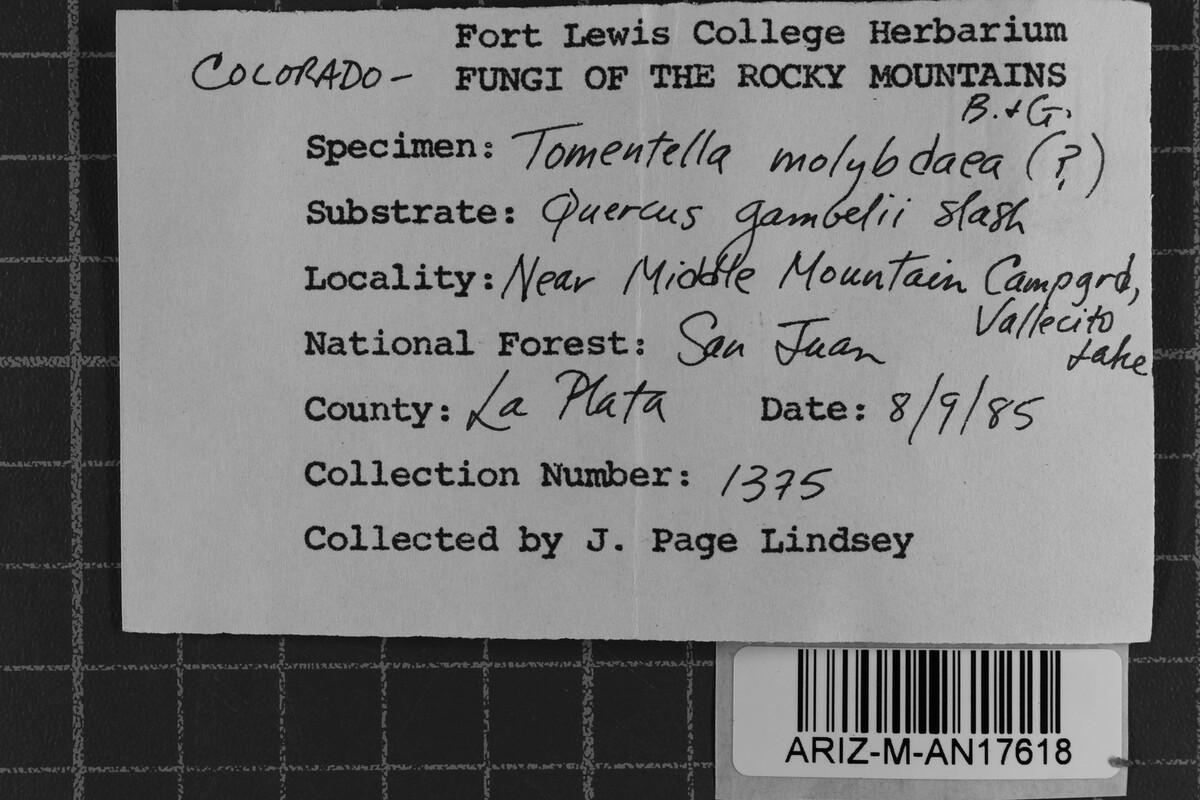 Fort Lewis College Herbarium
COLORADO - FUNGI OF THE ROCKY MOUNTAINS
B. + G.
Specimen: Tomentella molybdaea (?)
Substrate: Quercus gambelii slash
Locality: Near Middle Mountain Campgrd,
Vallecito
Lake
National Forest: San Juan
County: La Plata Date: 8/9/85
Collection Number: 1375
Collected by J. Page Lindsey
ARIZ-M-AN17618